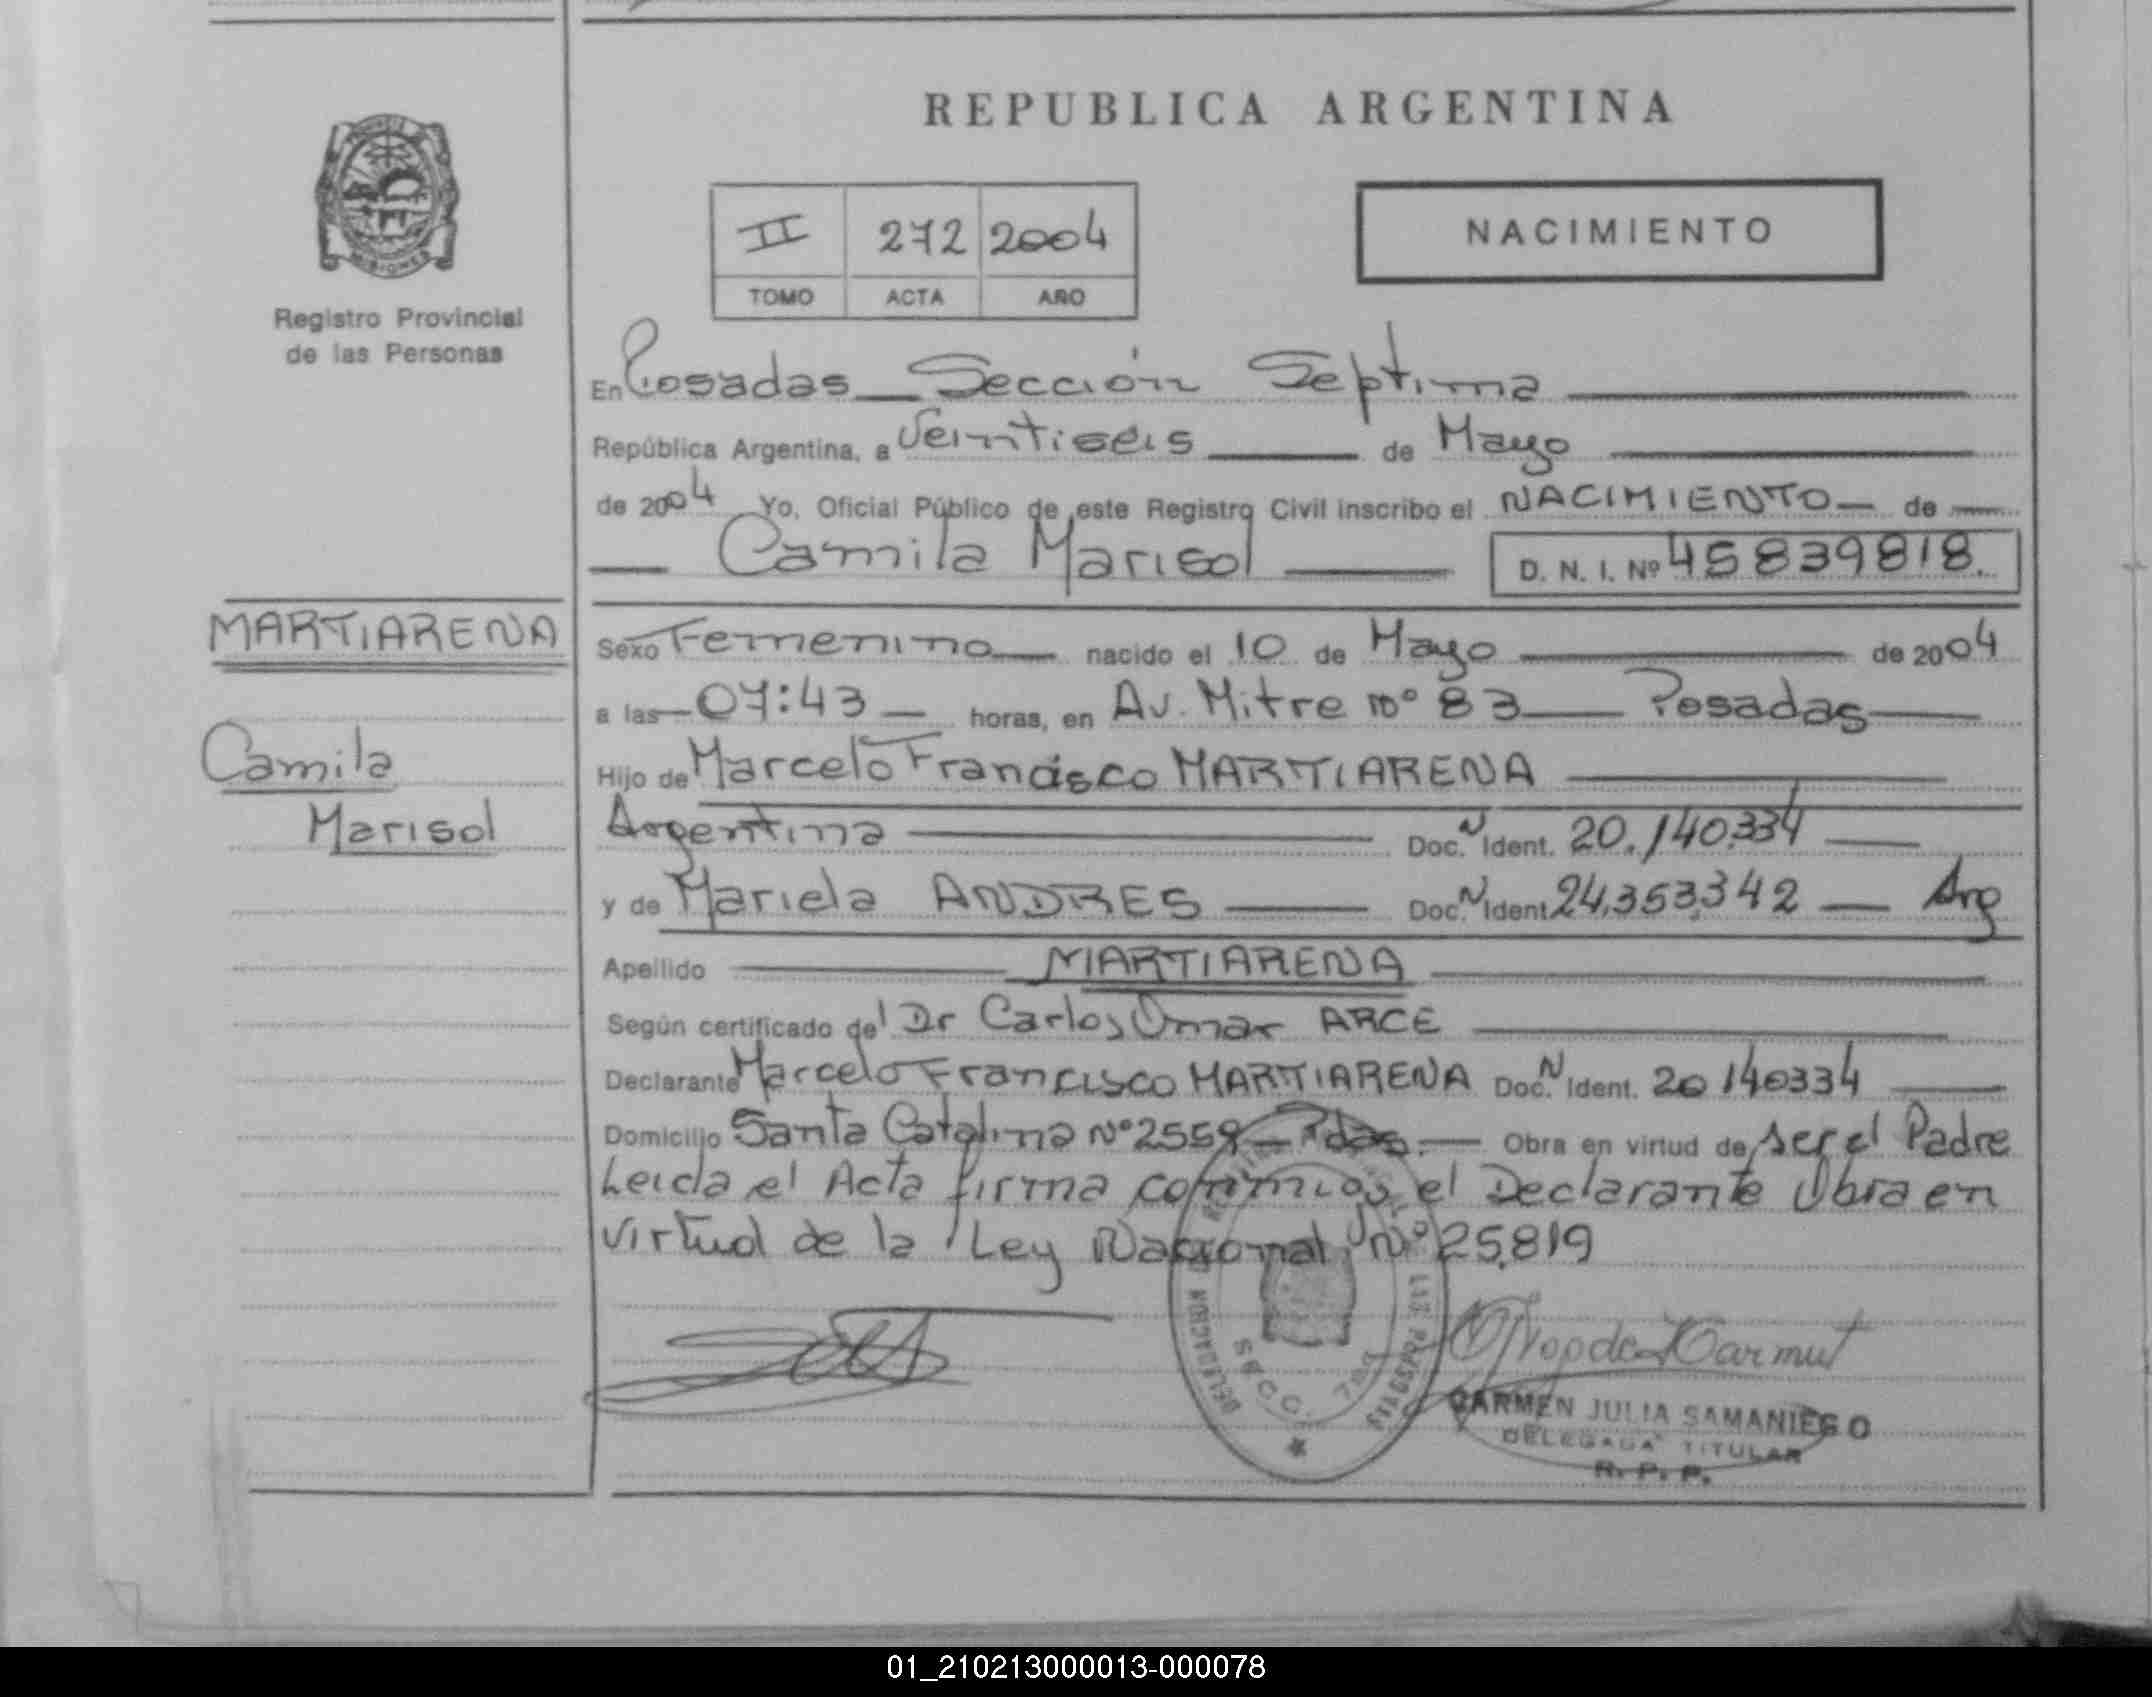 REPUBLICA ARGENTINA
II 272 2004
TOMO ACTA AÑO
NACIMIENTO
PROVINCIA MISIONES
Registro Provincial
de las Personas
En Posadas Sección Septima
República Argentina, a Veintiseis de Mayo
de 2004 Yo, Oficial Público de este Registro Civil inscribo el NACIMIENTO de
Camila Marisol D. N. I. Nº 45839818.
MARTIARENA
Camila
Marisol
Sexo Femenino nacido el 10 de Mayo de 2004
a las 07:43 horas, en Av. Mitre nº 83 Posadas
Hijo de Marcelo Francisco MARTIARENA
Argentina Doc. N Ident. 20.140.334
y de Mariela ANDRES Doc. N Ident 24.353.342 Arg
Apellido MARTIARENA
Según certificado del Dr Carlos Omar ARCE
Declarante Marcelo Francisco MARTIARENA Doc. N Ident. 20140334
Domicilio Santa Catalina Nº 2559 Pdas. Obra en virtud de ser el Padre
Leida el Acta firma conmigo el Declarante Obra en
virtud de la Ley Nacional Nº 25.819
SECC. 7ma
CARMEN JULIA SAMANIEGO
DELEGADA TITULAR
R. P. P.
01_210213000013-000078